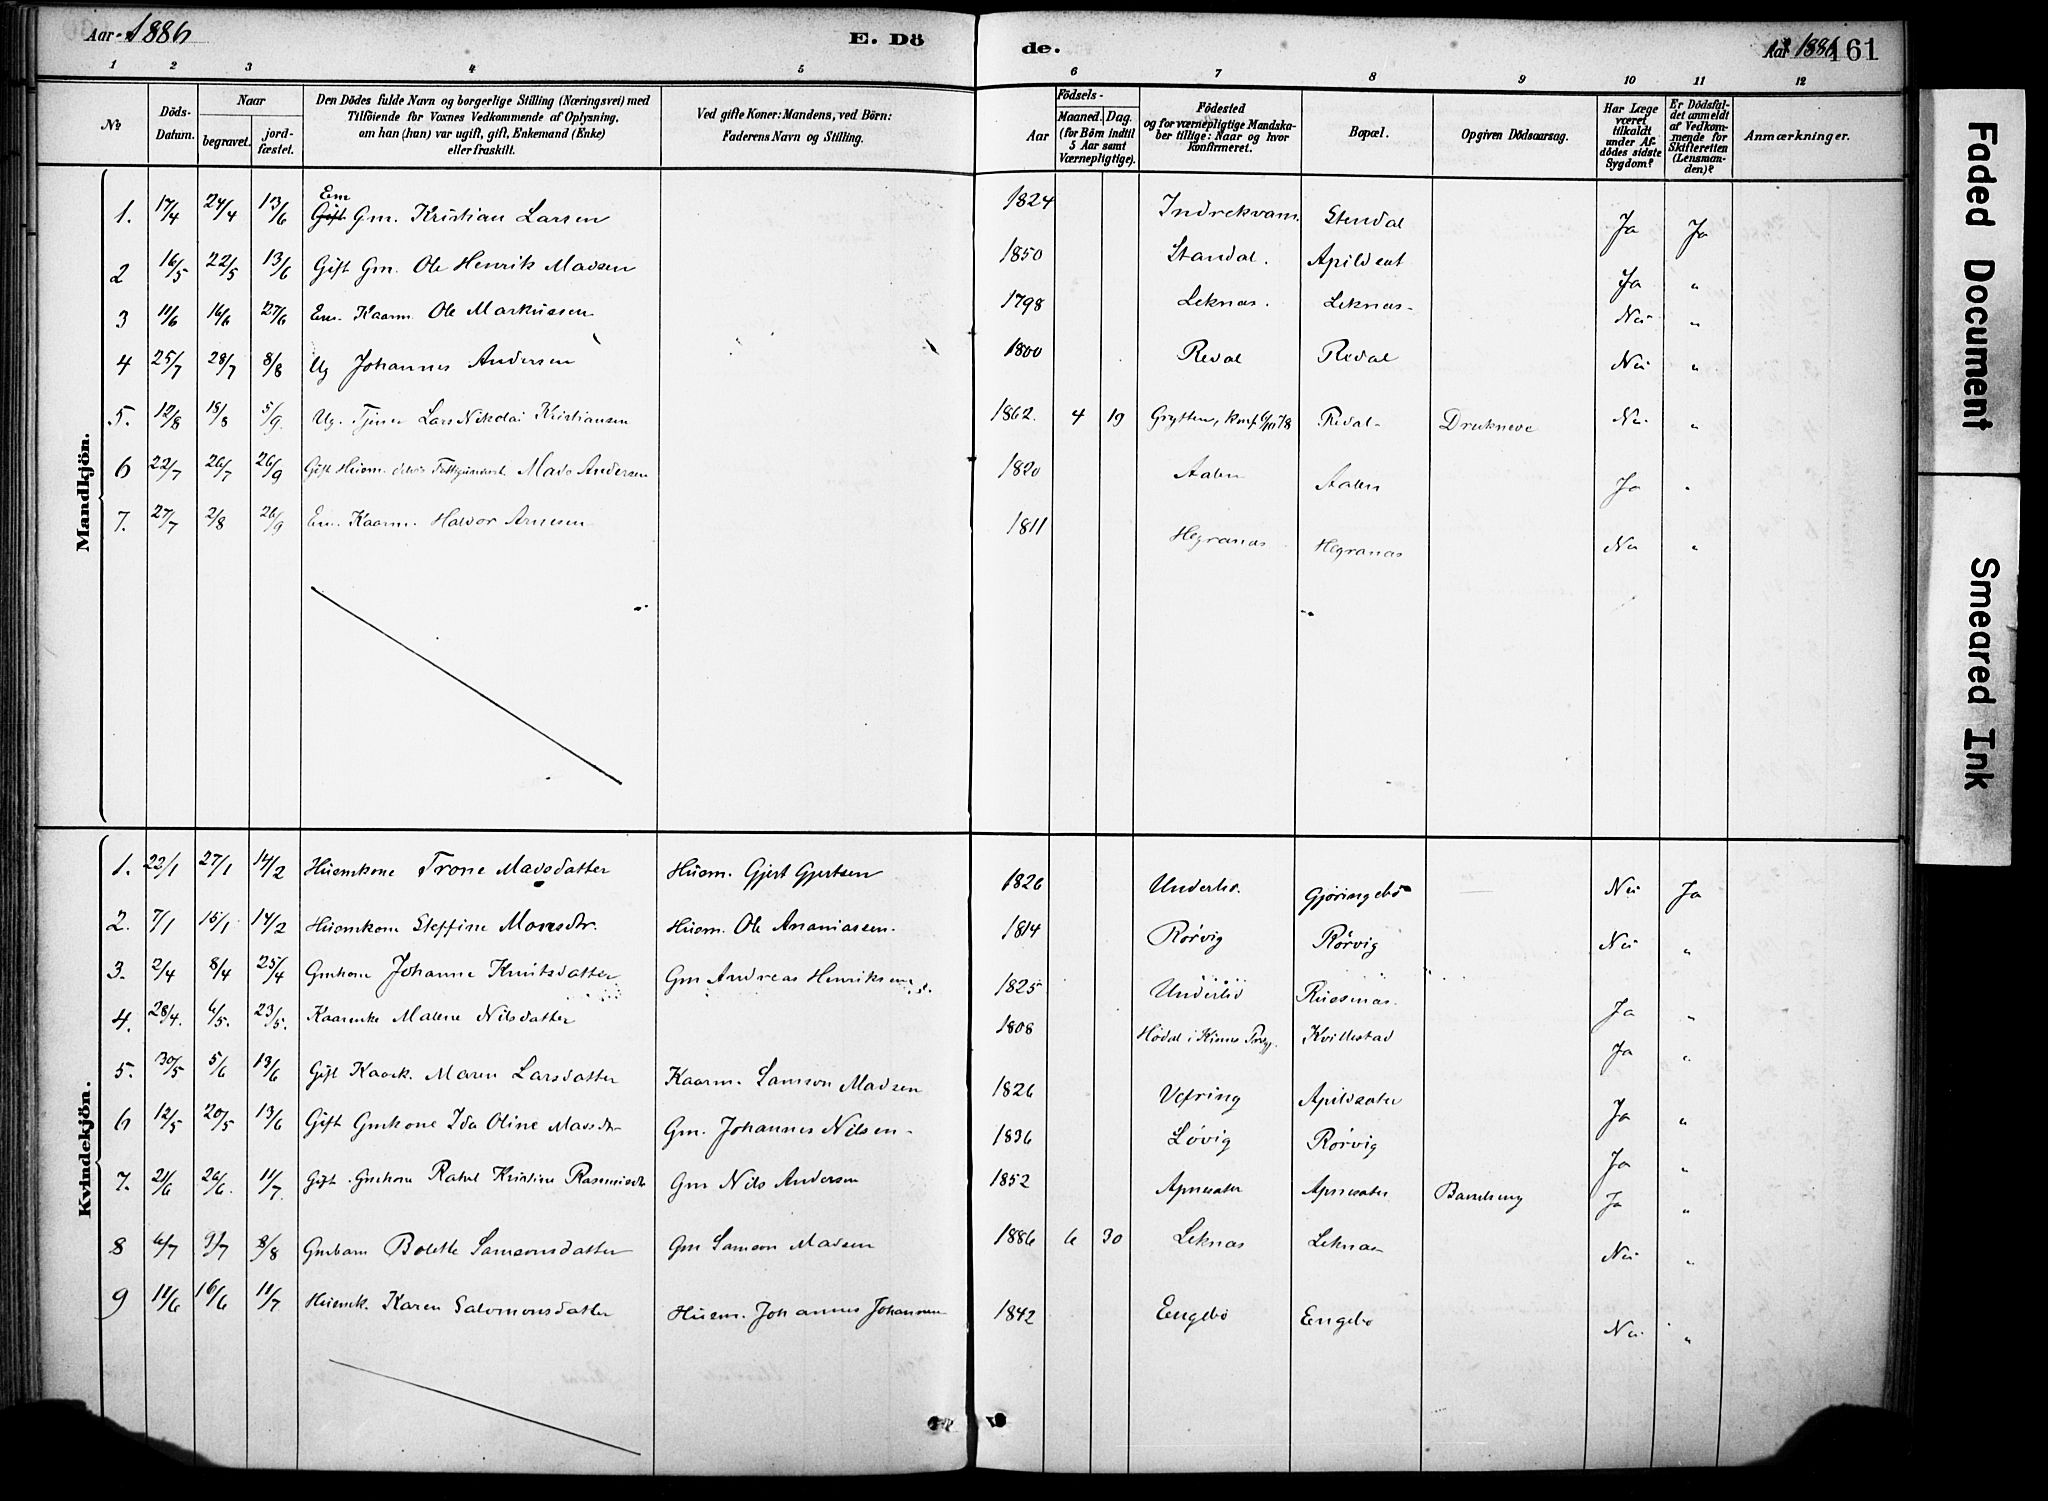 Aar 1886 E. Döde. Aar 1886 161
1 2 3 4 5 6 7 8 9 10 11 12
No Döds-Datum. Naar begravet. jordfæstet. Den Dödes fulde Navn og borgerlige Stilling (Næringsvei) med Tilföiende for Voxnes Vedkommende af Oplysning, om han (hun) var ugift, gift, Enkemand (Enke) eller fraskilt. Ved gifte Koner: Mandens, ved Börn: Faderens Navn og Stilling. Födsels- Aar Maaned. Dag. (for Börn indtil 5 Aar samt Værnepligtige). Födested og for værnepligtige Mandskaber tillige: Naar og hvor konfirmeret. Bopæl. Opgiven Dödsaarsag. Har Læge været tilkaldt under Afdödes sidste Sygdom? Er Dödsfaldet anmeldt af Vedkommende for Skifteretten (Lensmanden)? Anmærkninger.
Mandkjön.
1. 17/4 24/4 13/6 Em Gift Gm. Kristian Larsen 1824 Indrekvam Stendal Ja Ja
2 16/5 22/5 13/6 Gift Gm. Ole Henrik Madsen 1850 Standal. Apildset Ja "
3 11/6 16/6 27/6 Em. Kaarm. Ole Markussen 1798 Leknæs. Leknæs. Nei "
4 25/7 28/7 8/8 Ug Johannes Andersen 1800 Redal Redal Nei "
5. 12/8 15/8 5/9. Ug. Tjener Lars Nikolai Kristiansen 1862. 4 19 Grytten, Redal Druknede Nei "
6 22/7 26/7 26/9 Gift Husm. Mads Andersen 1820 Aalen Aalen Ja "
7. 27/7 2/8 26/9 Em. Kaarm. Halvor Arnesen 1811 Hegranæs Hegranæs Nei "
Kvindekjön.
1. 22/1 27/1 14/2 Husmkone Trone Madsdatter Husm. Gjert Gjertsen 1826 Underlid. Gjøringebø Nei Ja
2. 7/1 15/1 14/2 Husmkone Steffine Monsdtr. Husm. Ole Ananiassen. 1814 Rørvig Rørvig Nei "
3. 2/4 8/4 25/4 Gmkone Johanne Knutsdatter Gm Andreas Henriksen 1825 Underlid Russenæs. Ja "
4. 28/4. 6/5. 23/5. Kaarenke Malene Nilsdatter 1808 Hødal i Kinns Prgj. Kvillestad Ja "
5. 30/5 5/6 13/6 Gift Kaark. Maren Larsdatter Kaarm. Samson Madsen 1826 Vefring Apildsæter Ja "
6 12/5 20/5 13/6 Gift Gmkone Ida Oline Madsdtr Gm. Johannes Nilsen. 1836 Løvig Rørvig Ja "
7. 21/6 26/6. 11/7. Gift Gmkone Rakel Kristine Rasmusdtr Gm Nils Andersen 1852 Apnesæter Apnesæter Barselseng Ja "
8 6/7 9/7 8/8 Gmbarn Bolette Samsonsdatter Gm Samson Madsen 1886 6 30 Leknæs Leknæs Nei "
9 11/6 16/6 11/7 Husmk. Karen Salomonsdatter Husm. Johannes Johannesen 1842 Engebø Engebø Nei "
Faded Document
Smeared Ink